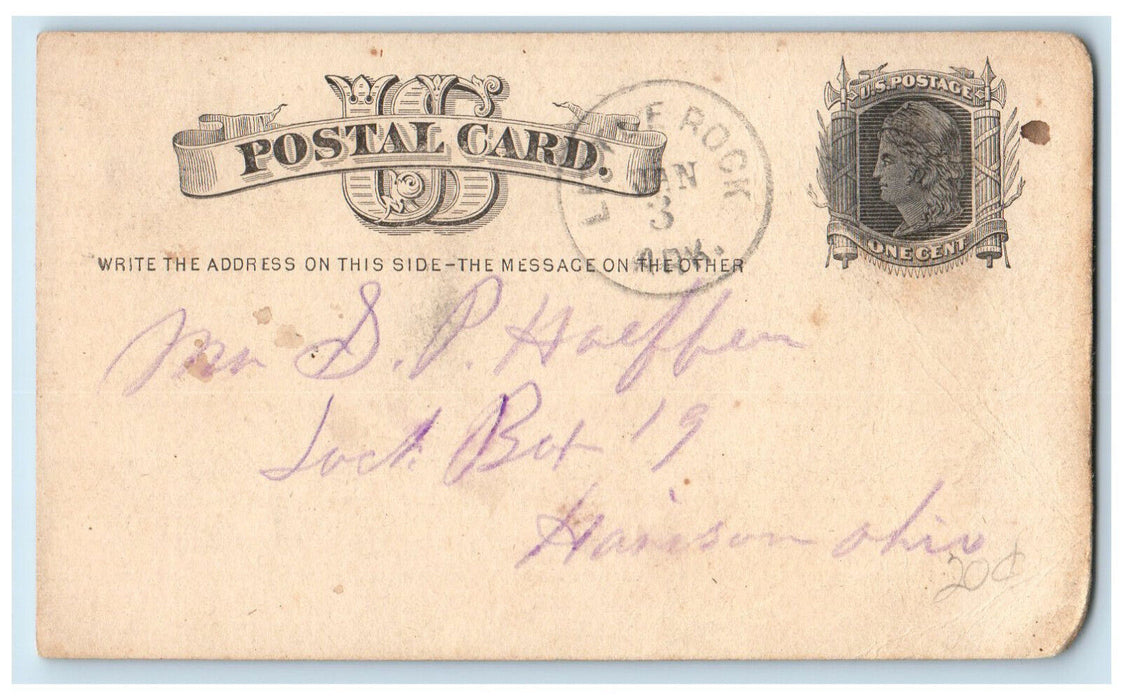 US
POSTAL CARD.
LITTLE ROCK
JAN
3
ARK.
U.S. POSTAGE
ONE CENT
WRITE THE ADDRESS ON THIS SIDE-THE MESSAGE ON THE OTHER
Mr S. P. Haeffen
Lock Box 19
Harison Ohio
20¢